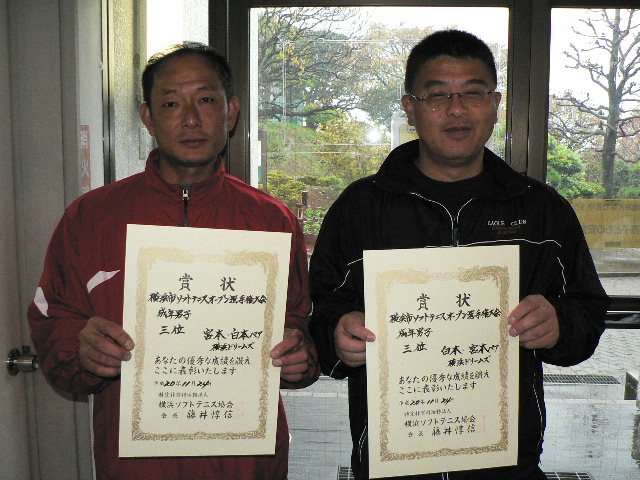 賞状
横浜市ソフトテニスオープン選手権大会
成年男子
三位 宮本・白本ペア
横浜ドリームズ
あなたの優秀な成績を讃え
ここに表彰いたします
平成20年11月24日
特定非営利活動法人
横浜ソフトテニス協会
会長 藤井淳信
EAGLE CLUB
賞状
横浜市ソフトテニスオープン選手権大会
成年男子
三位 白本・宮本ペア
横浜ドリームズ
あなたの優秀な成績を讃え
ここに表彰いたします
平成20年11月24日
特定非営利活動法人
横浜ソフトテニス協会
会長 藤井淳信